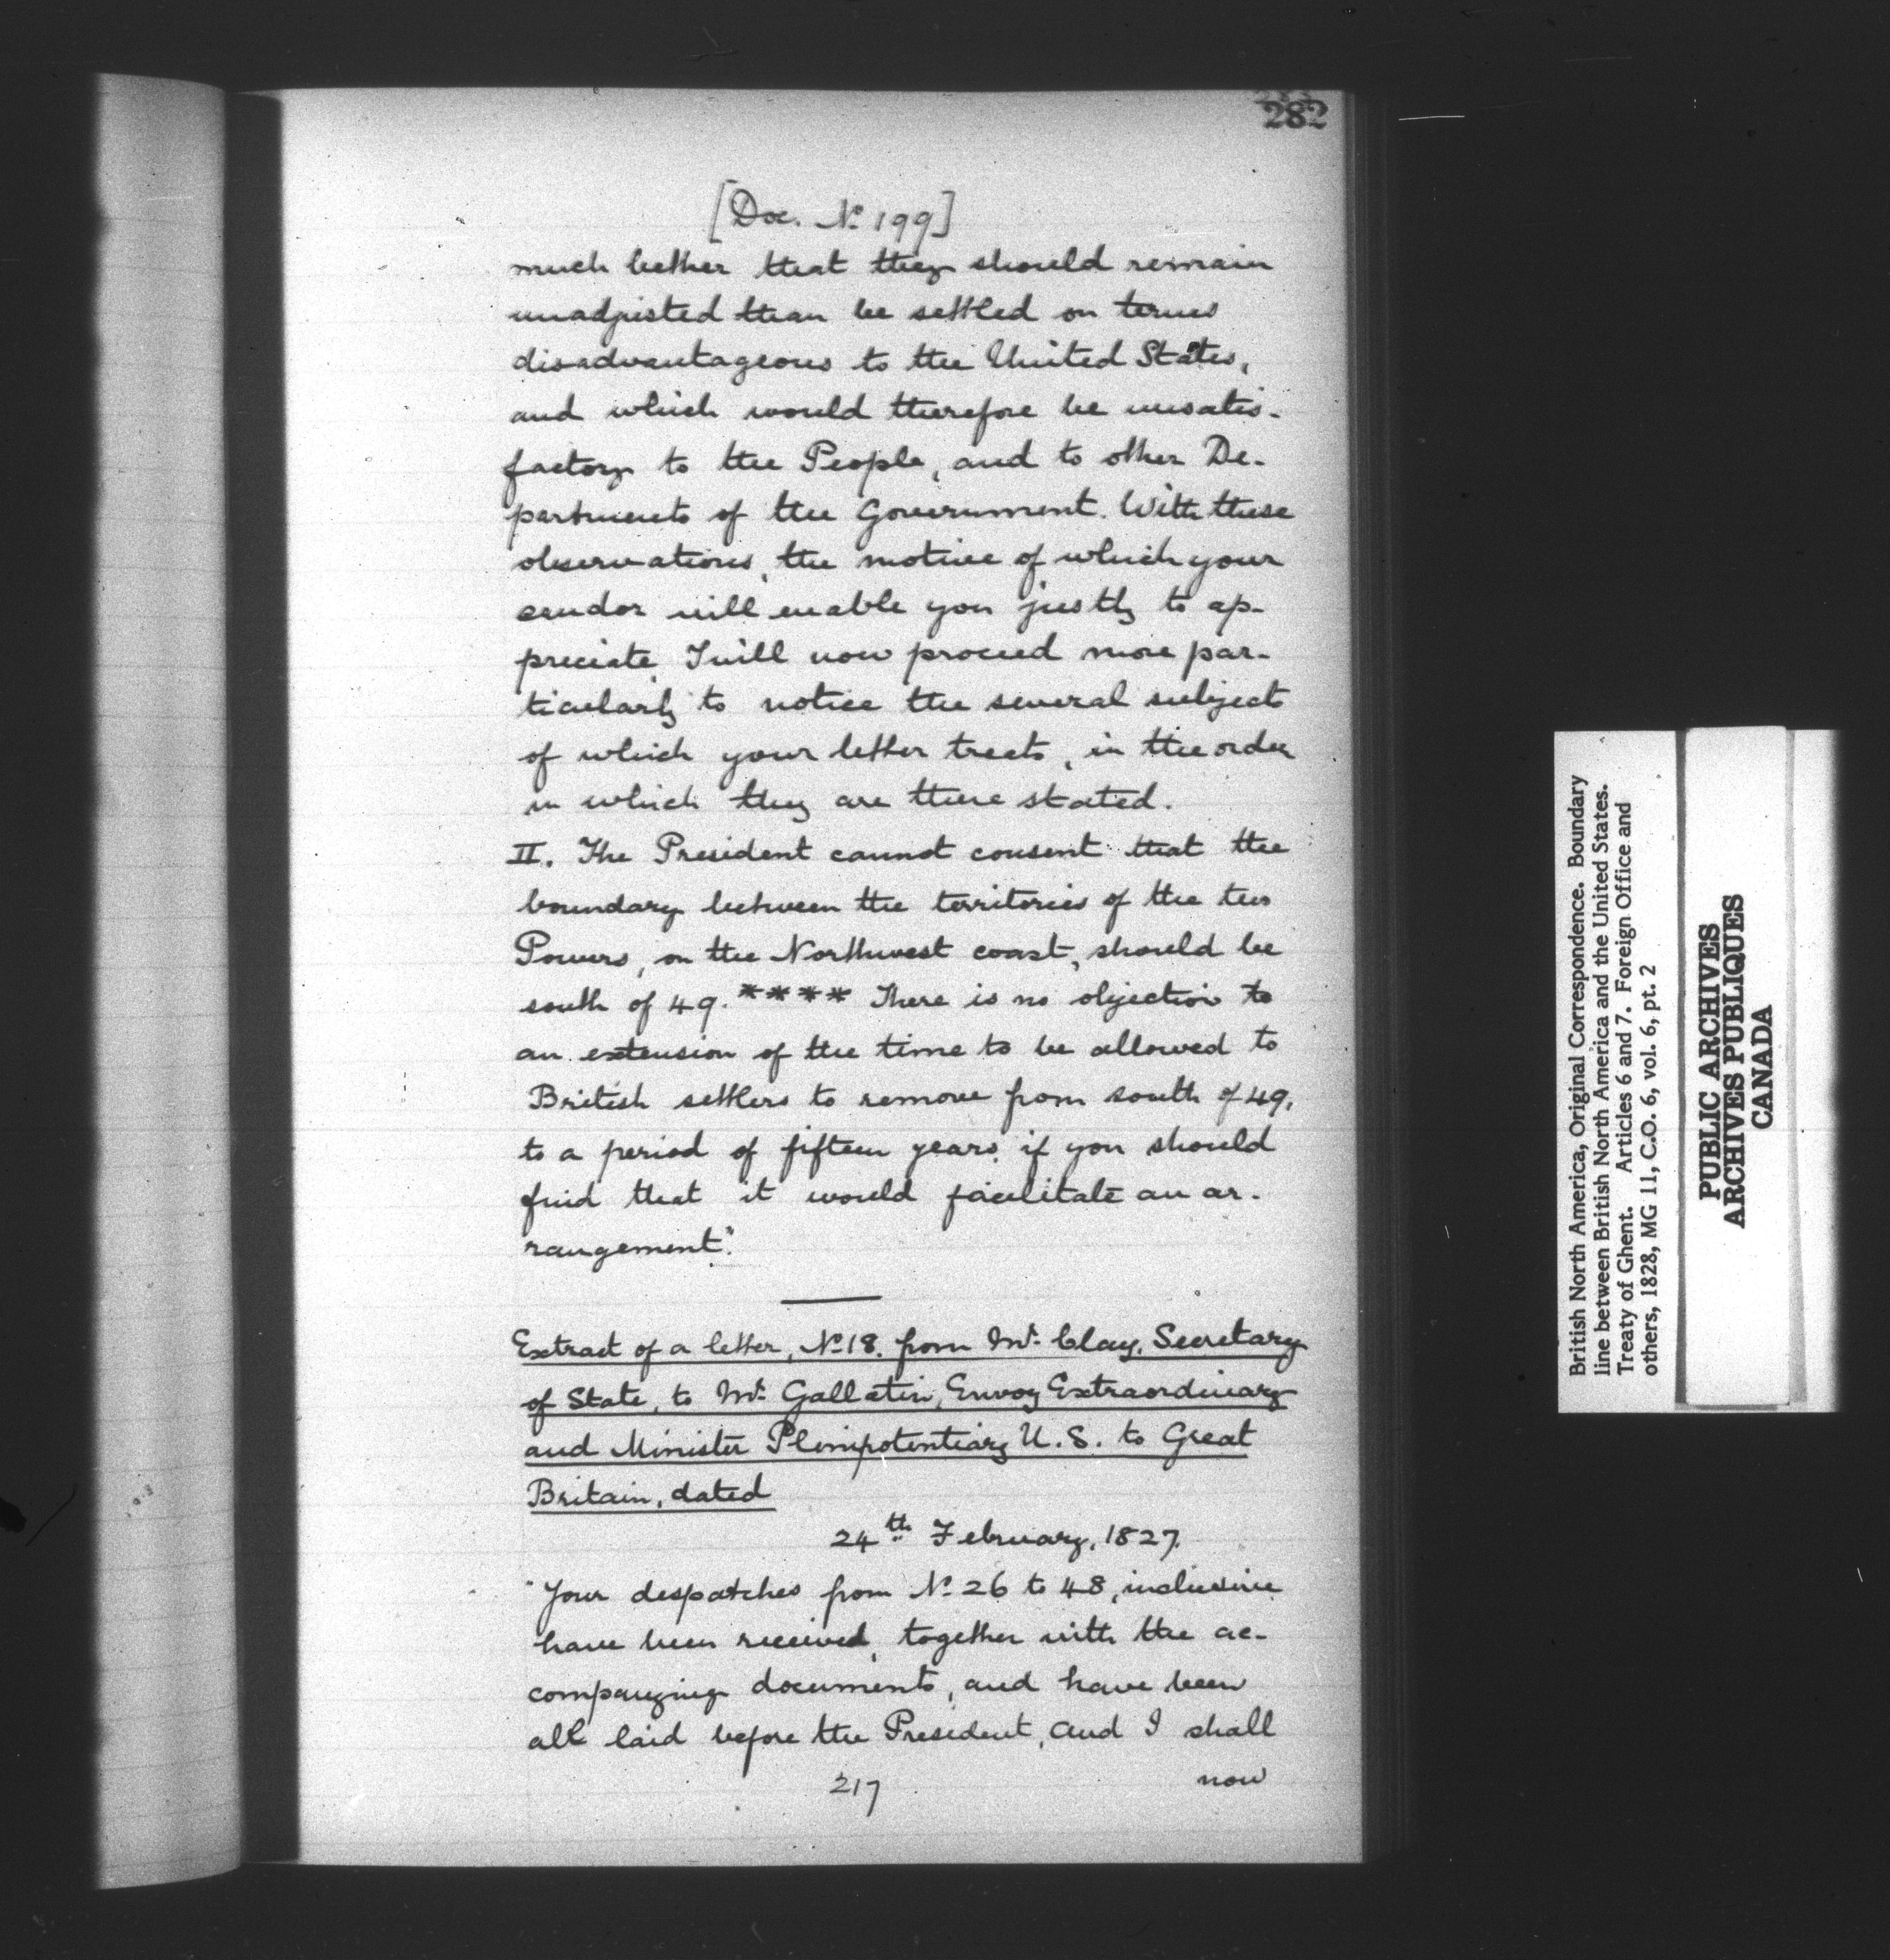 282
[Doc. No 199]
much better that they should remain
unadjusted than be settled on terms
disadvantageous to the United States,
and which would therefore be unsatis-
factory to the People, and to other De-
partments of the Government. With these
observations, the motive of which your
candor will enable you justly to ap-
preciate, I will now proceed more par-
ticularly to notice the several subjects
of which your letter treats, in the order
in which they are there stated.
II. The President cannot consent that the
boundary between the territories of the two
Powers, on the Northwest coast, should be
south of 49. **** There is no objection to
an extension of the time to be allowed to
British settlers to remove from south of 49,
to a period of fifteen years, if you should
find that it would facilitate an ar-
rangement."
Extract of a letter, No 18. from Mr. Clay, Secretary
of State, to Mr. Gallatin, Envoy Extraordinary
and Minister Plenipotentiary U.S. to Great
Britain, dated
24th February, 1827.
"Your despatches from No 26 to 48, inclusive
have been received, together with the ac-
companying documents, and have been
all laid before the President, and I shall
217 now
British North America, Original Correspondence. Boundary
line between British North America and the United States.
Treaty of Ghent. Articles 6 and 7. Foreign Office and
others, 1828, MG 11, C.O. 6, vol. 6, pt. 2
PUBLIC ARCHIVES
ARCHIVES PUBLIQUES
CANADA